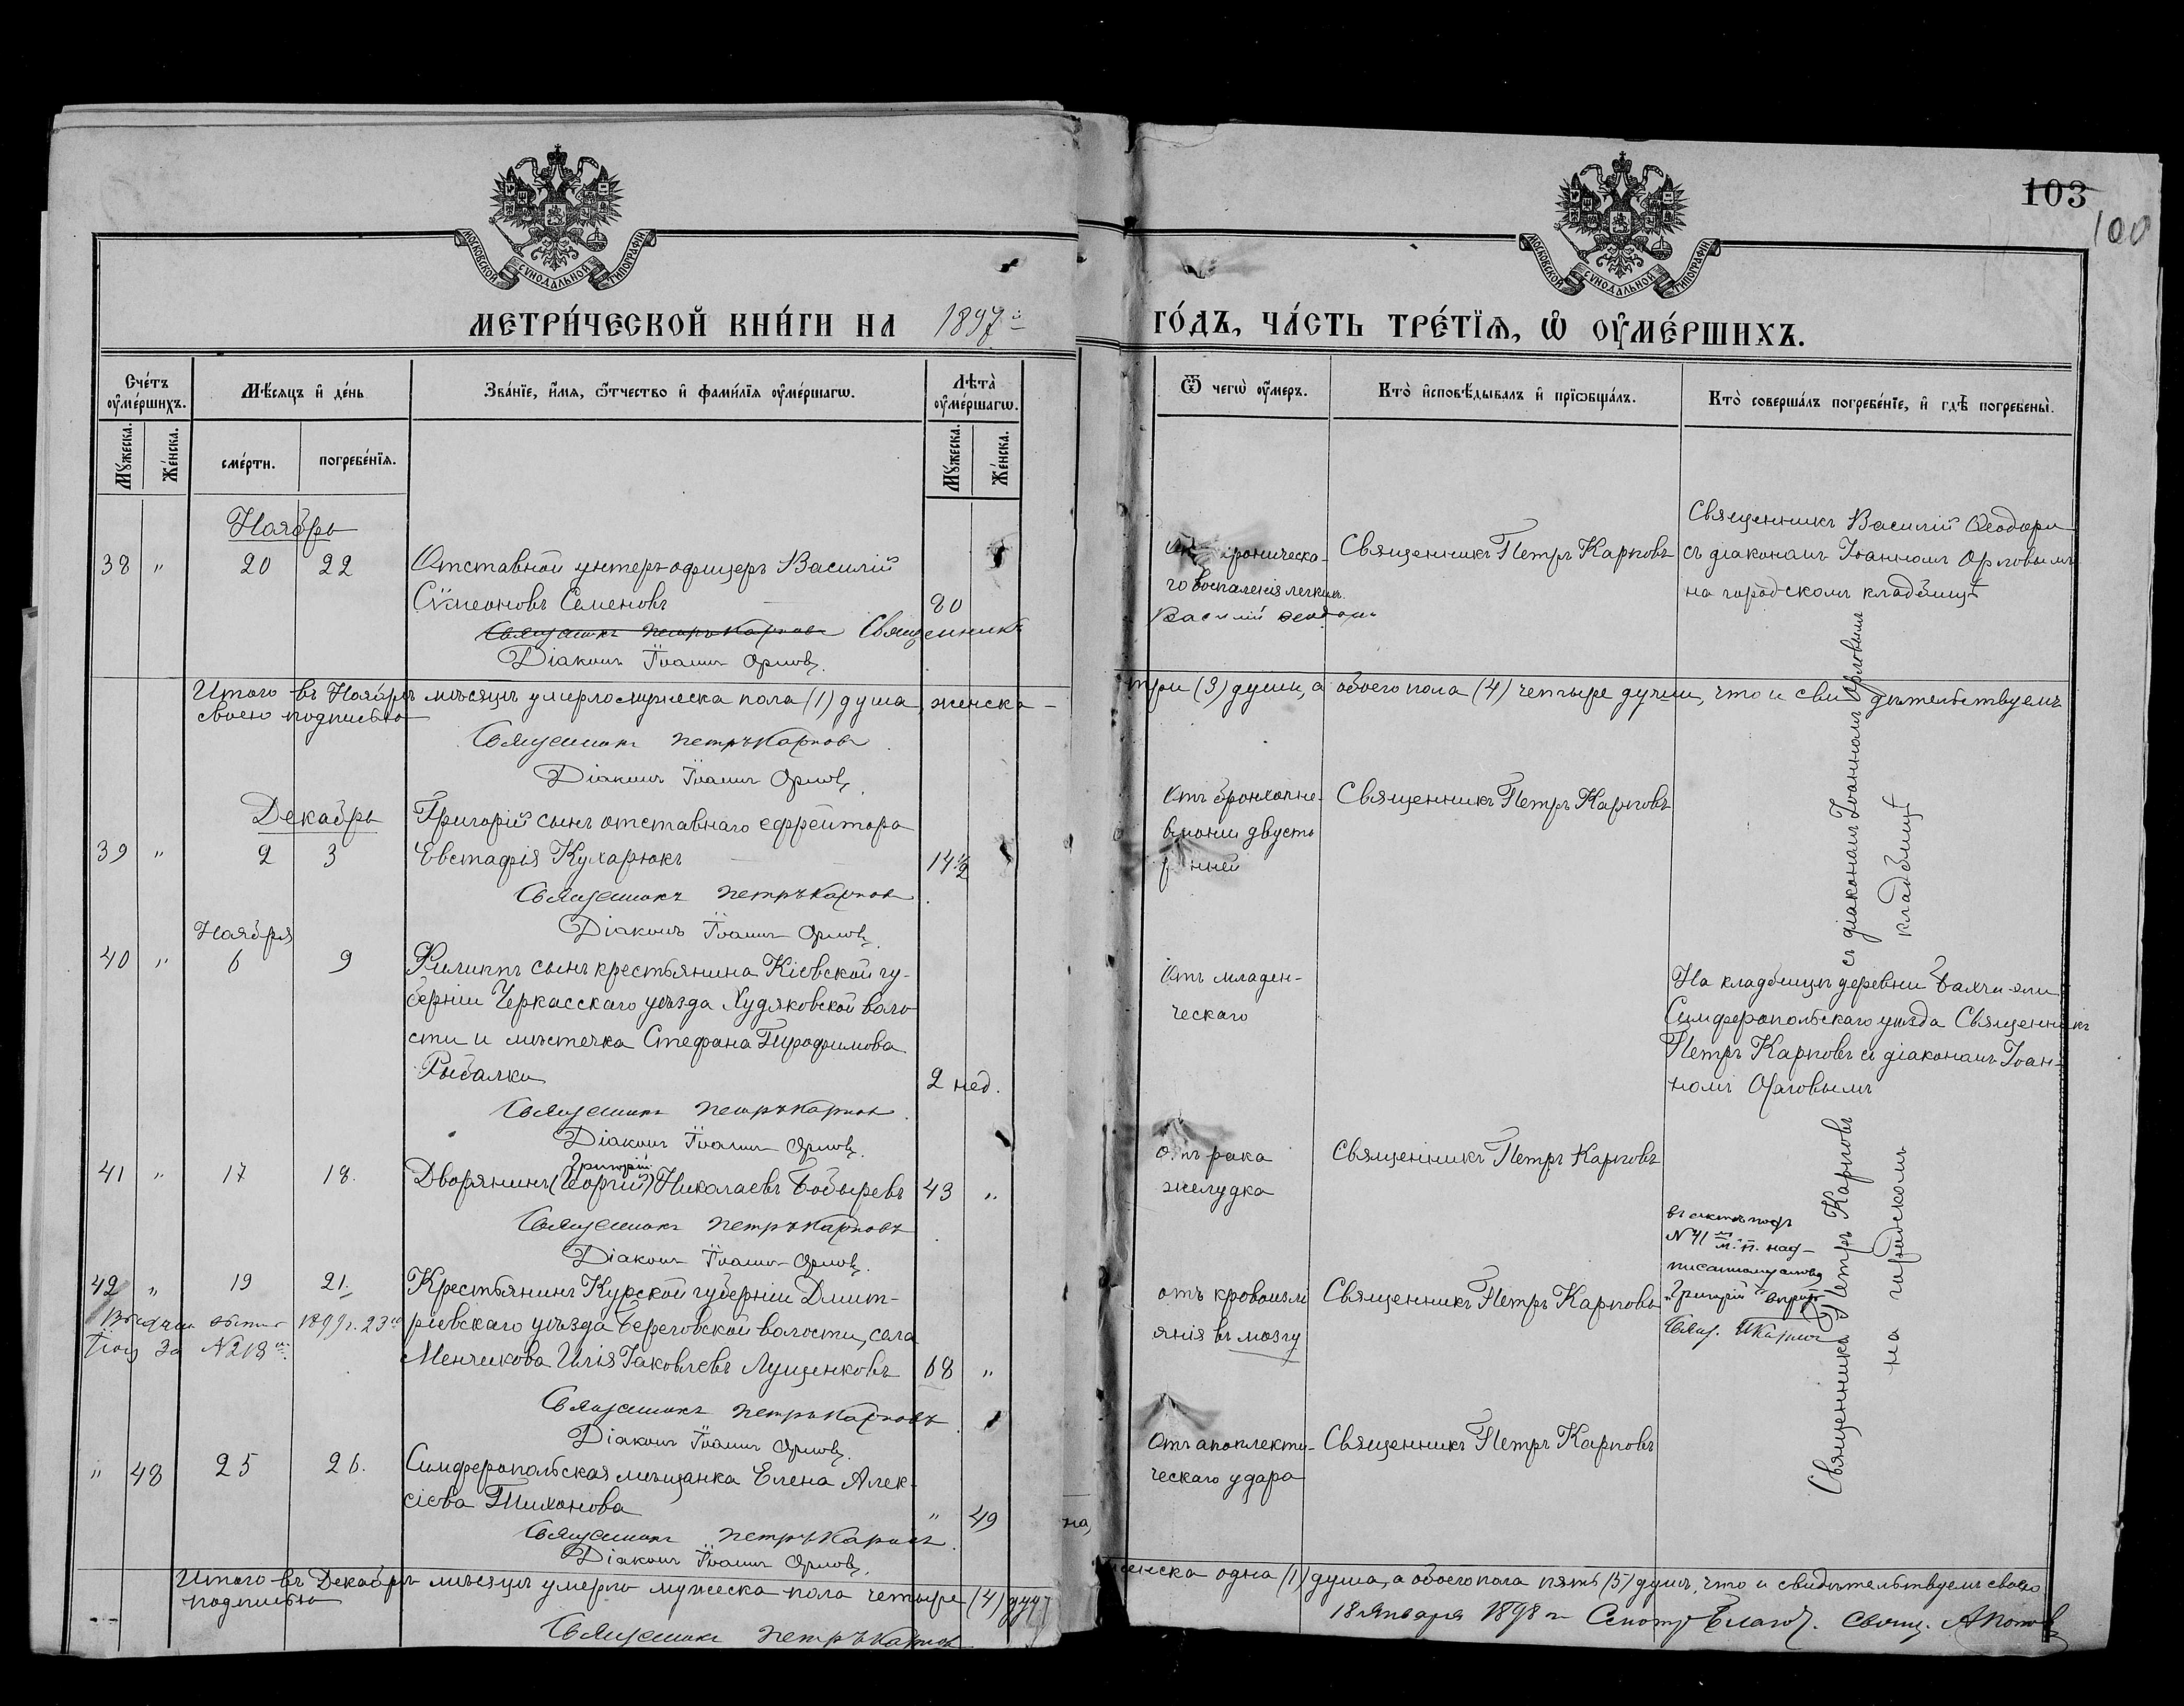 МОСКОВСКОЙ СѴНОДАЛЬНОЙ ТИПОГРАФІИ
МЕТРИ́ЧЕСКОЙ КНИ́ГИ НА 1897й
Сче́тъ ᲂу҆ме́ршихъ.
Мѣ́сяцъ и҆ де́нь
Зва́нїе, и҆́мя, ѻ҆́тчество и҆ фами́лїя ᲂу҆ме́ршагѡ.
Лѣ̀та ᲂу҆ме́ршагѡ.
Мꙋ́жеска.
Же́нска.
сме́рти.
погребе́нїя.
Мꙋ́жеска.
Же́нска.
Ноябрь
38 " 20 22 Отставной унтеръ-офицеръ Василій
Сѵмеоновъ Семеновъ 80
Священникъ Петръ Карповъ Священникъ
Діаконъ Іоаннъ Орловъ.
Итого въ Ноябрѣ мѣсяцѣ умерло мужеска пола (1) душа, женска
своею подписью
Священникъ Петръ Карповъ
Діаконъ Іоаннъ Орловъ
Декабрь Григорій сынъ отставнаго ефрейтора
39 " 2 3 Евстафія Кухарюкъ 14 1/2
Священникъ Петръ Карповъ
Діаконъ Іоаннъ Орловъ.
Ноября
40 " 6 9 Филиппъ сынъ крестьянина Кіевской гу-
берніи Черкасскаго уѣзда Худяковской воло-
сти и мѣстечка Стефана Трофимова
Рыбалки 2 нед.
Священникъ Петръ Карповъ
Діаконъ Іоаннъ Орловъ.
Григорій
41 " 17 18. Дворянинъ (Георгій) Николаевъ Бобыревъ 43 "
Священникъ Петръ Карповъ
Діаконъ Іоаннъ Орловъ.
42 " 19 21. Крестьянинъ Курской губерніи Дмит-
1899 г. 23го ріевскаго уѣзда Береговской волости, села
за №218м. Менчикова Илія Іаковлевъ Лущенковъ 68 "
Священникъ Петръ Карповъ
Діаконъ Іоаннъ Орловъ.
" 48 25 26. Симферопольская мѣщанка Елена Алек-
сіева Тихонова " 49
Священникъ Петръ Карповъ.
Діаконъ Іоаннъ Орловъ.
Итого въ Декабрѣ мѣсяцѣ умерло мужеска пола четыре (4) душ
подписью
Священникъ Петръ Карповъ
103
100
МОСКОВСКОЙ СѴНОДАЛЬНОЙ ТИПОГРАФІИ
ГО́ДЪ, ЧА́СТЬ ТРЕ́ТЇѦ, Ѡ҆ ОУ҆МЕ́РШИХЪ.
Ѿ чегѡ̀ ᲂу҆́меръ.
Кто̀ и҆сповѣ́дывалъ и҆ прїѡбща́лъ.
Кто̀ соверша́лъ погребе́нїе, и҆ гдѣ̀ погребены̀.
Священникъ Василій Ѳеодори
хроническа- Священникъ Петръ Карповъ съ діакономъ Іоанномъ Орловымъ
го воспаленія легкихъ. на городскомъ кладбищѣ
Василій
три (3) души, а обоего пола (4) четыре души, что и свидѣтельствуемъ
Отъ бронхопне- Священникъ Петръ Карповъ
вмоніи двусто
р нней
Отъ младен-
ческаго
На кладбищѣ деревни Бахчи-эли
Симферопольскаго уѣзда Священникъ
Петръ Карповъ съ діакономъ Іоан-
номъ Орловымъ
Отъ рака Священникъ Петръ Карповъ
желудка
въ актѣ подъ
№41 м. п. над-
писанному слово
"Григорій" вѣрить
Свящ. П Карповъ
отъ кровоизлі Священникъ Петръ Карповъ
янія въ мозгу
Отъ апоплекти- Священникъ Петръ Карповъ
ческаго удара
Священникъ Петръ Карповъ съ діакономъ Іоанномъ Орловымъ
на городскомъ кладбищѣ
женска одна (1) душа, а обоего пола пять (5) душъ, что и свидѣтельствуемъ своею
18 января 1898 г. Смотр. Благоч. Свящ. А Попов